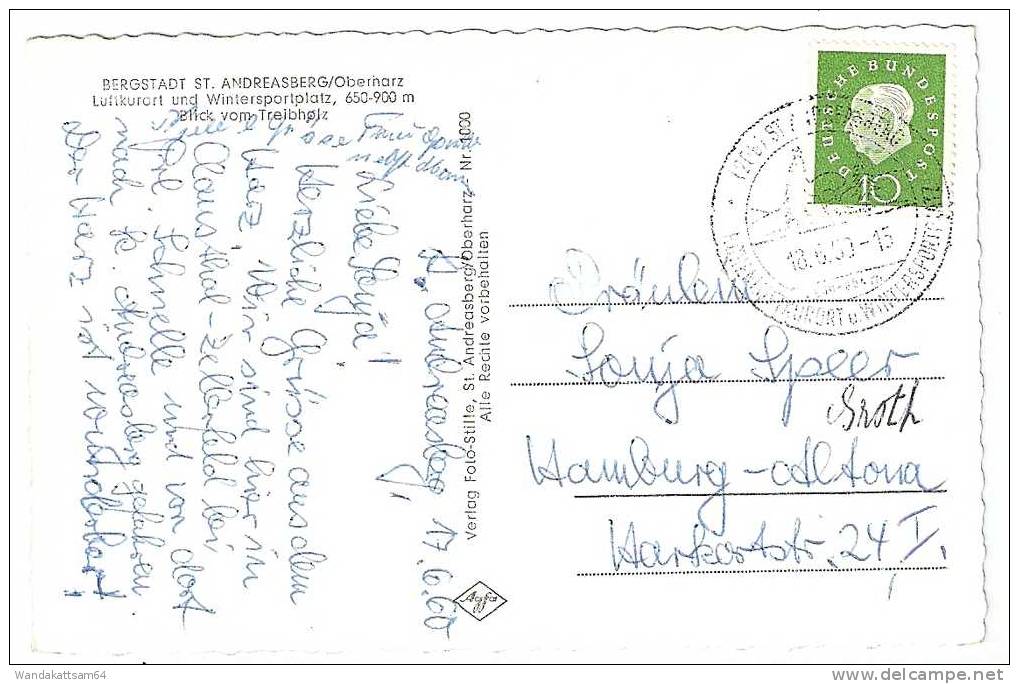 BERGSTADT ST. ANDREASBERG/Oberharz
Luftkurort und Wintersportplatz, 650-900 m
Blick vom Treibholz
St. Andreasberg, 17.6.60
Liebe Sonja!
Herzliche Grüsse aus dem
Harz. Wir sind hier in
Claust hal-Zellerfeld bei
Frl. Schnelle und von dort
nach St. Andreasberg gefahren.
Der Harz ist wunderbar!
Grüsse
Frau
Verlag Foto-Stille, St. Andreasberg/Oberharz - Nr. 1000
Alle Rechte vorbehalten
Agfa
DEUTSCHE BUNDESPOST
10
18.6.60-15
KURORT u. WINTERSPORT
Fräulein
Sonja Speer
Broth
Hamburg-Altona
Harkortstr. 24 I.
Wandakattsam64
www.delcampe.net